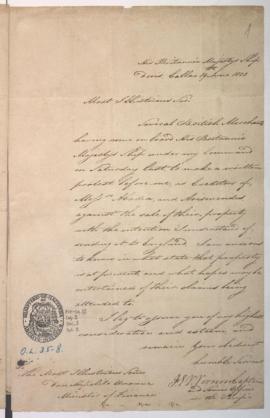 His Britannic Majesty's Ship
Callao 19 June 1823
Most Illustrious Sir.
Several British Merchants
having come on board His Britannic
Majesty's Ship under my Command
on Saturday last to make a written
protest before me, as Creditors of
Mess.rs Abadia, and Arismendi
against the sale of their property
with the intention I understand of
sending it to England. I am anxious
to know in what state that property
is at present and what hopes may be
entertained of their claims being
attended to.
I beg to assure you of my highest
consideration and esteem, and
remain Your obedient
humble Servant
O.L. 35-8.
The Most Illustrious Señor
Don Hipolito Unanue
Minister of Finance